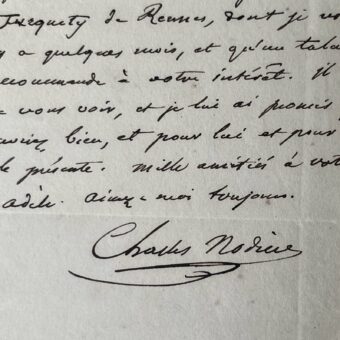 Turquety de Rennes, dont je vo
y a quelques mois, et qu'un tale
recommande à votre intérêt. Il
vous voir, et je lui ai promis
bien, et pour lui et pour
le présente. mille amitiés à vot
adèle. aimez-moi toujours.
Charles Nodier